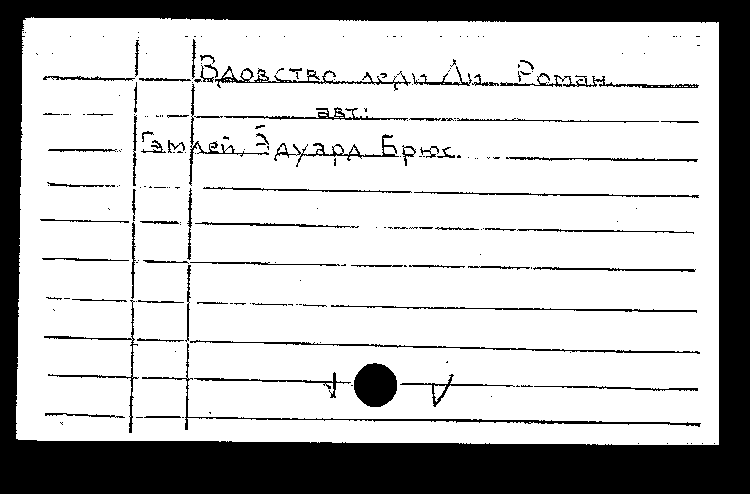 Вдовство леди Ли. Роман.
авт.:
Гэмлей, Эдуард Брюс.